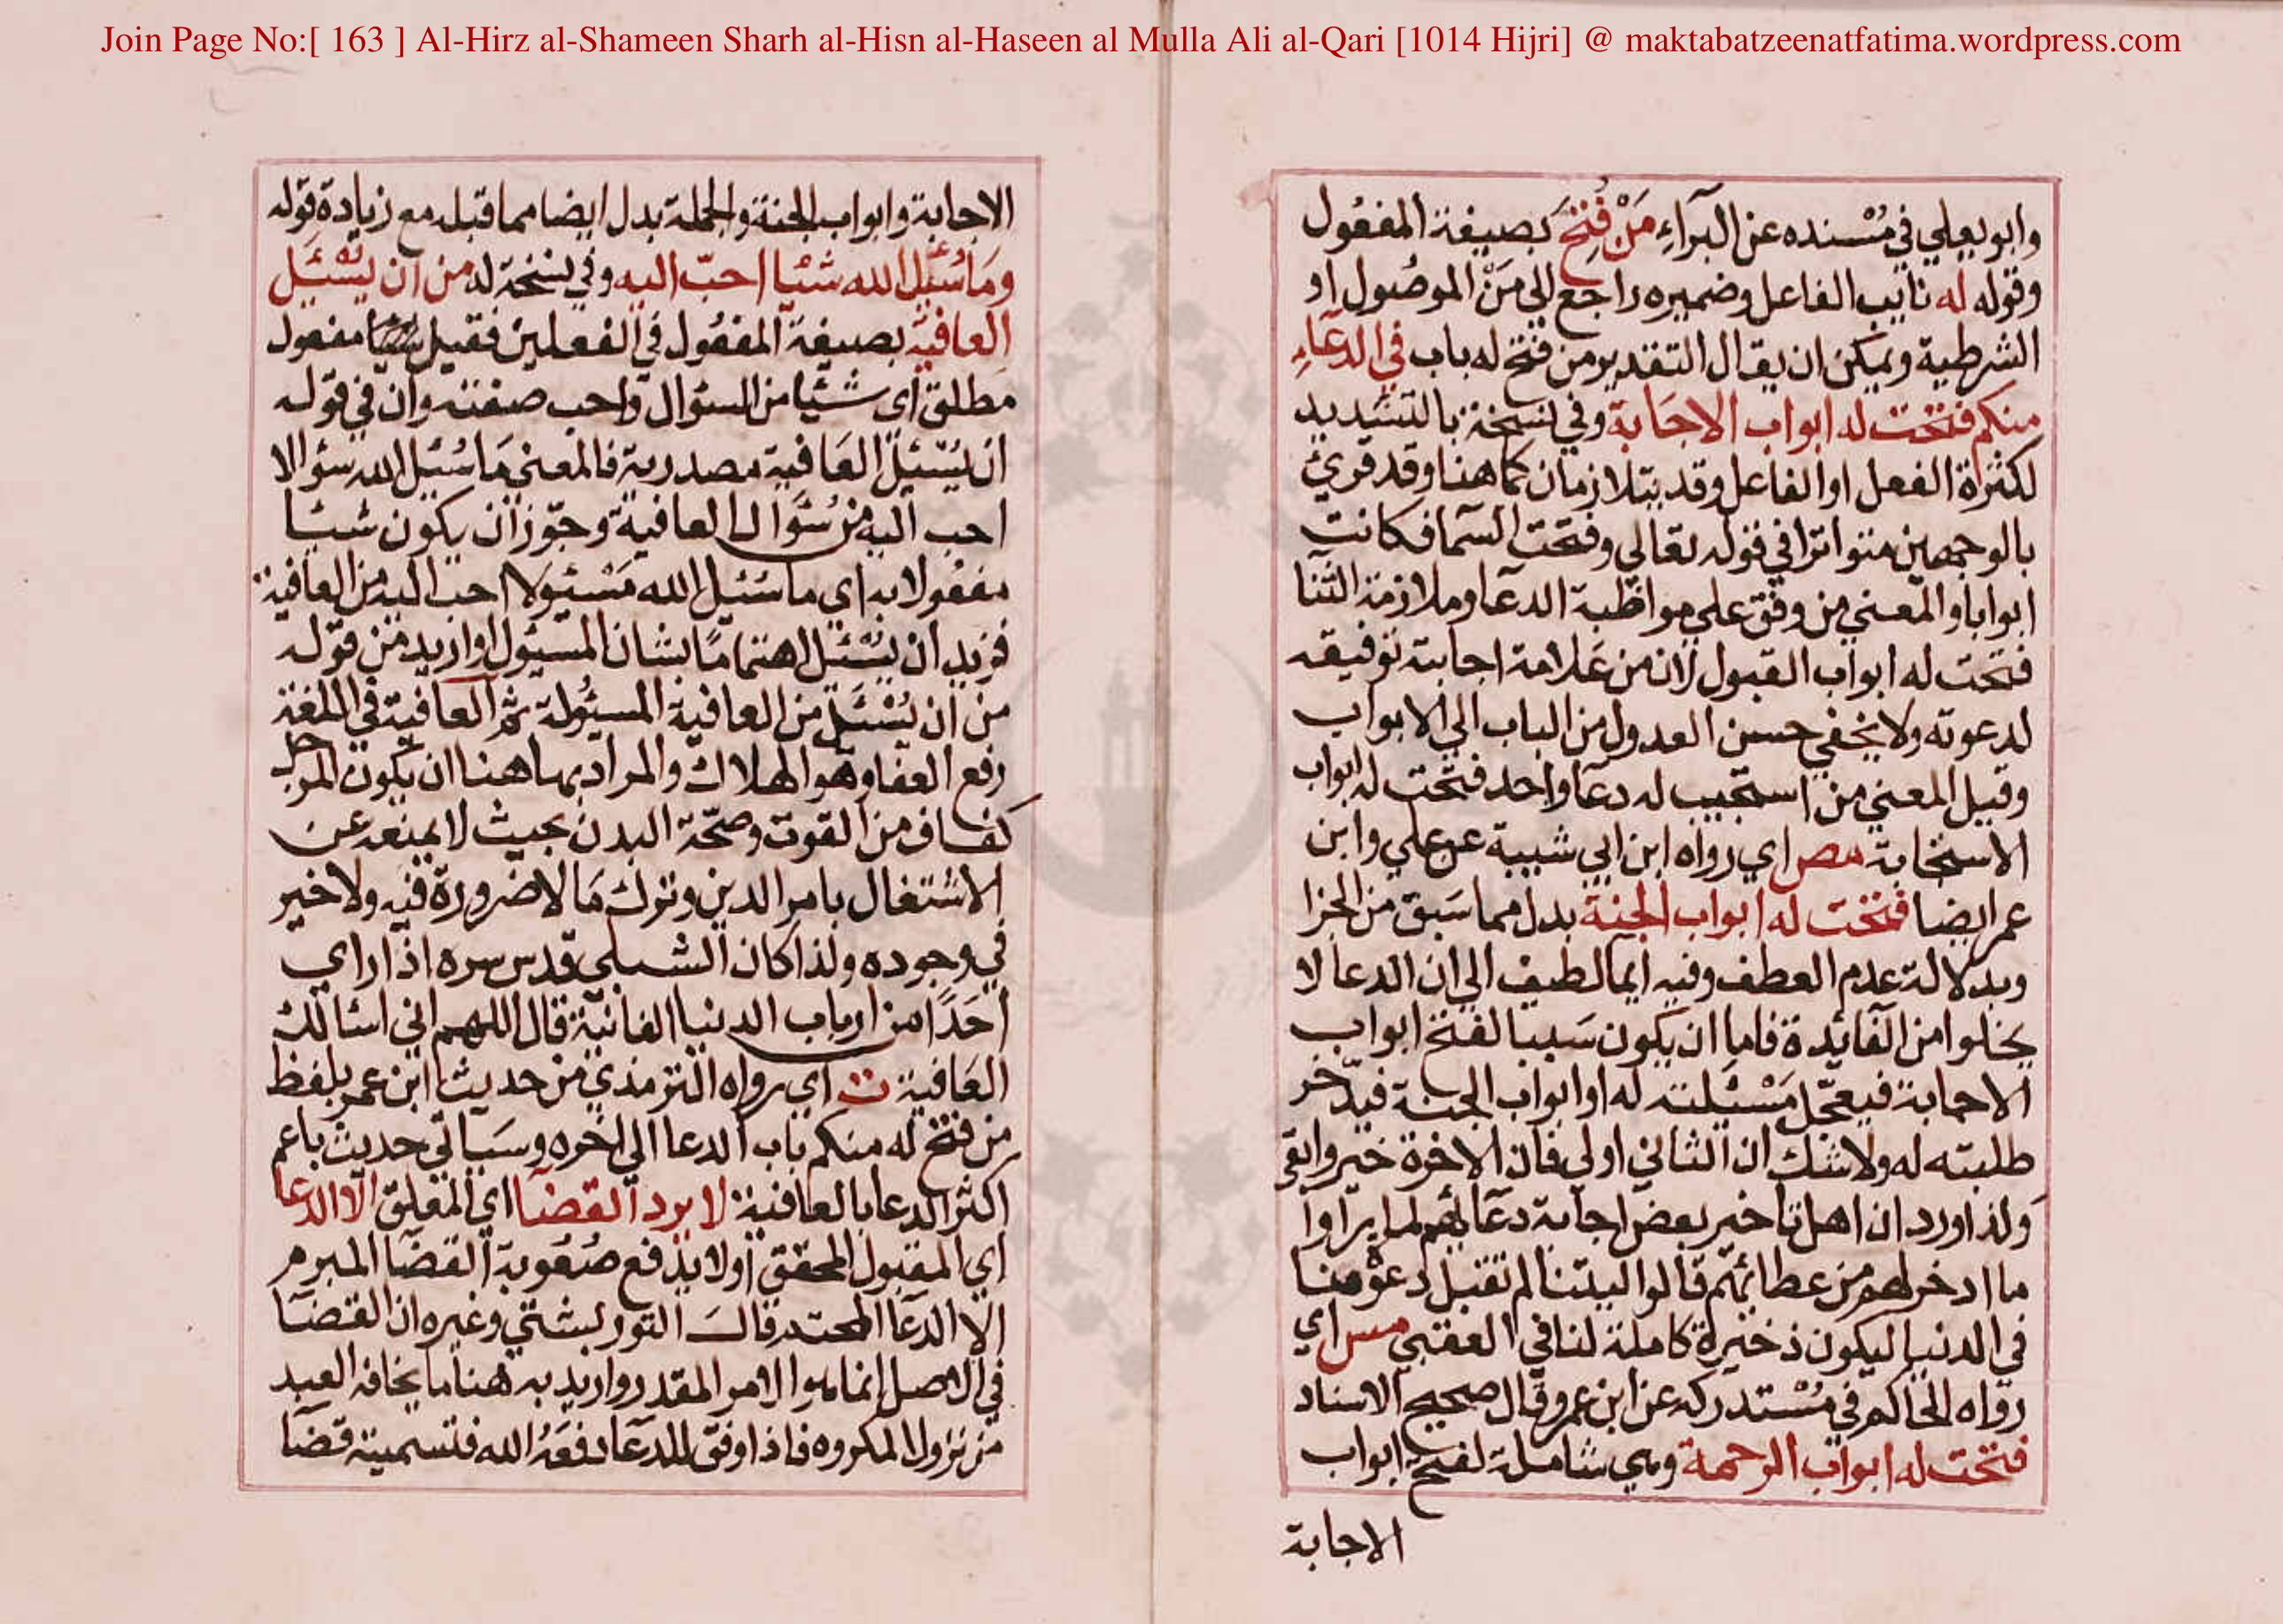 Join Page No:[ 163 ] Al-Hirz al-Shameen Sharh al-Hisn al-Haseen al Mulla Ali al-Qari [1014 Hijri] @ maktabatzeenatfatima.wordpress.com
وابو يعلي في مُسْنده عن البرآءِ مَنْ فُتِحَ بصيغة المفعُول
وقوله له نايب الفاعل وضميره راجع الي مَنْ الموصُول او
الشرطية ويمكن ان يقال التقدير من فتح له باب في الدعآءِ
منكم فتحت له ابواب الاجَابة وفي نسخة بالتشديد
لكثرة الفعل او الفاعل وقد يتلازمان كما هنا وقد قرئَ
بالوجهين متواترا في قوله تعالي وفتحت السّما فكانت
ابوابا والمعني من وفق علي مواظبة الدعا وملازمة الثنا
فتحت له ابواب القبول لان من علامة اجابته توفيقه
لدعوته ولا يخفي حسن العدول من الباب الي الابواب
وقيل المعني من استجيب له دعآ واحد فتحت له ابواب
الاستجابة مص اي رواه ابن ابي شيبة عن علي وابن
عمر ايضا فتحت له ابواب الجنة بدل مما سَبق من الجزا
وبدلالة عدم العطف وفيه ايما لطيف الي ان الدعا لا
يخلوا من الفائدة فاما ان يكون سَببا لفتح ابواب
الاجابة فيعجّل مَسْئلته له او ابواب الجنة فيدّخر
طلبته له ولا شك ان الثاني اولي فان الاخرة خير وابقي
ولذا ورد ان اهل تاخير بعض اجابة دعآئهم لما يرآوا
ما ادخر لهم من عطائهم قالوا ليتنا لم تقبل دعوْة منا
في الدنيا ليكون ذخيرة كاملة لنا في العقبي مس اي
رواه الحاكم في مُسْتدركه عن ابن عمر وقال صحيح الاسناد
فتحت له ابواب الرحمة وهي شاملة لفتح ابواب
الاجابة
الاجابة وابواب الجنة والجملة بدل ايضا مما قبله مع زيادة قوله
ومَا سُئل الله شئا احبّ اليه وفي نسخة له من ان يسْئَل
العافية بصيغة المفعُول في الفعلين فقيل شيئا مفعول
مطلق اي شيئا من السئوال واحب صفته وان في قوله
ان يُسْئل العَافية مصدرية فالمعني مَا سُئل الله سئوالا
احب اليه من سُئوال العافية وجوّز ان يكون شيئا
مفعُولا به اي ما سُئل الله مَسْئولا احب اليه من العافية
فزيد ان يسْئل اهتمامًا بشان المسئول او اريد من قوله
من ان يُسْئَل من العافية المسئولة ثم العافية في اللغة
رفع العفا وهو الهلاك والمراد بها هنا ان يكون للرجل
كفاف من القوت وصحّة البدن بحيث لا يمنعه عن
الاشتغال بامر الدين وترك مَا لا ضرورة فيه ولا خير
في وجوده ولذا كان الشبلي قدس سره اذا راي
اَحَدًا من ارباب الدنيا الفانية قال اللهم اني اسئالك
العَافية ت اي رواه الترمذي من حديث ابن عمر بلفظ
من فتح له منكم باب الدعا الي اخره وسَياتي حديث يا عم
اكثر الدعا بالعافية لا يرد القضآ اي المعلق الّا الدعا
اي المقبول المحقق او لا يدفع صُعُوبة القضَا المبرم
الا الدعا قال التوربشتي وغيره ان القضآ
في الاصل انما هو الامر المقدر واريد به هنا ما يخافه العبد
من نزول المكروه فاذا وفق للدعآ دفعَهُ الله فتسميته قضآ